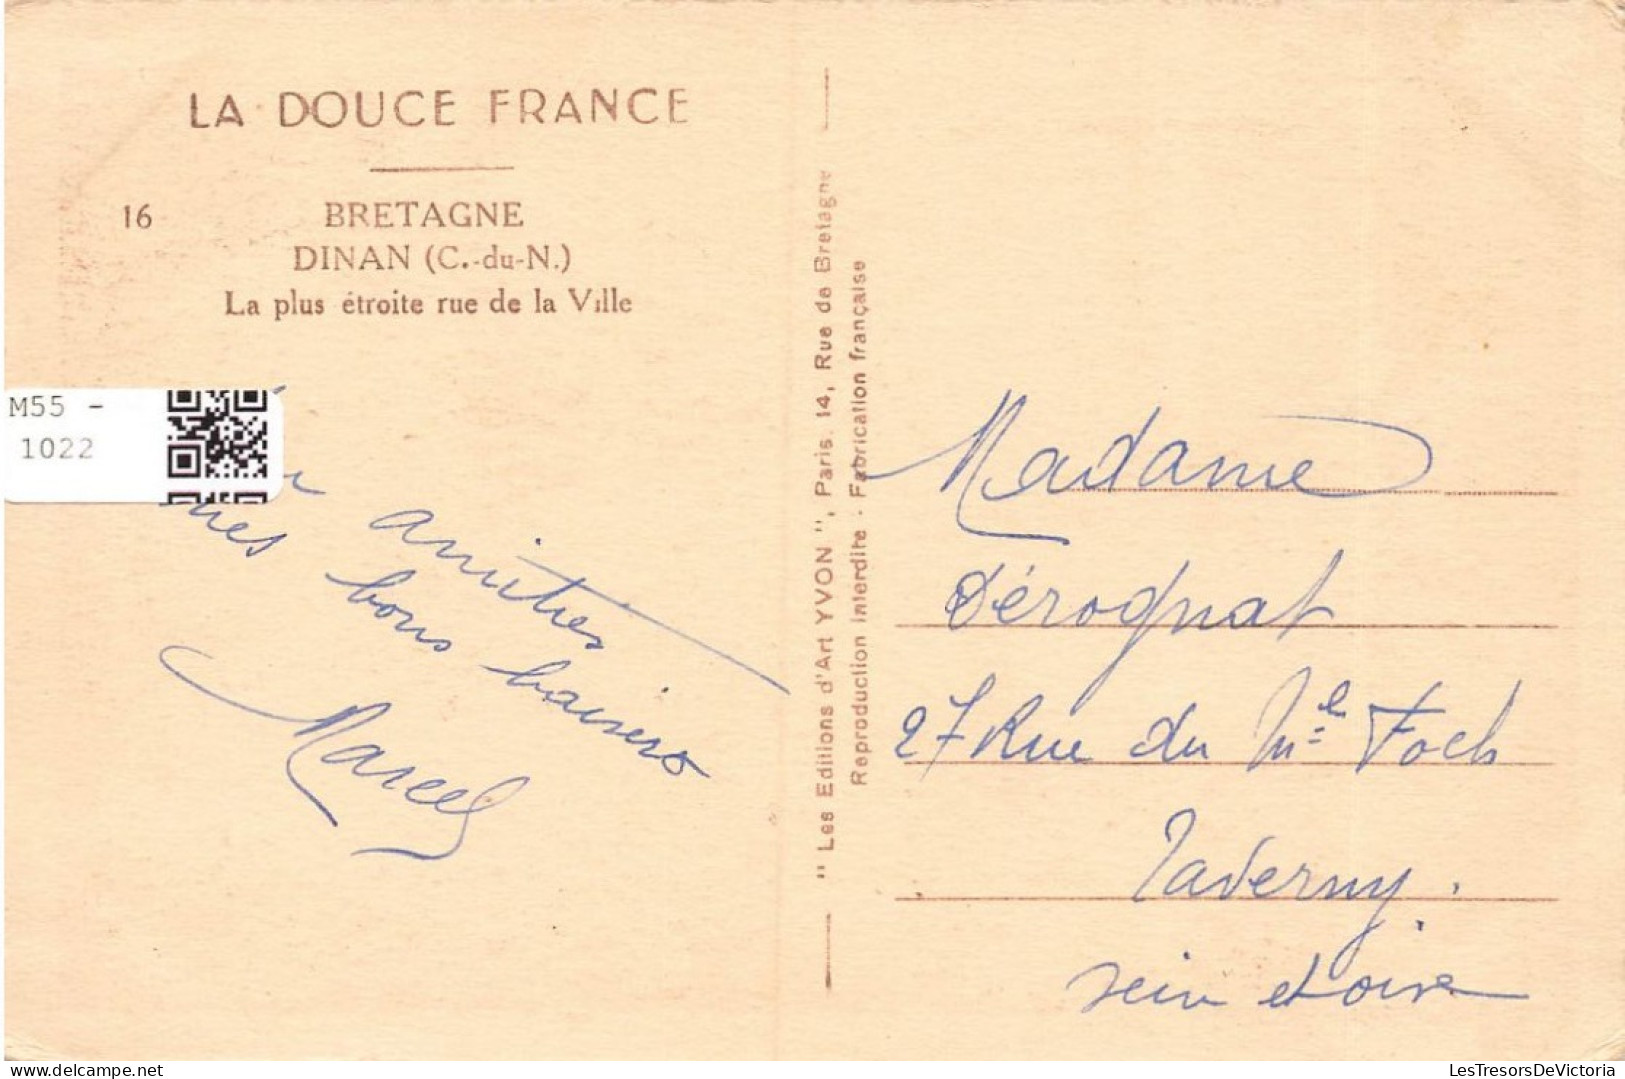 LA DOUCE FRANCE
16
BRETAGNE
DINAN (C.-du-N.)
La plus étroite rue de la Ville
M55 -
1022
amitiés
bons baisers
Marcel
" Les Editions d'Art YVON ", Paris. 14, Rue de Bretagne
Reproduction interdite - Fabrication française
Madame
Dérognat
27 Rue du Mal Foch
Taverny.
Seine et Oise
LesTresorsDeVictoria